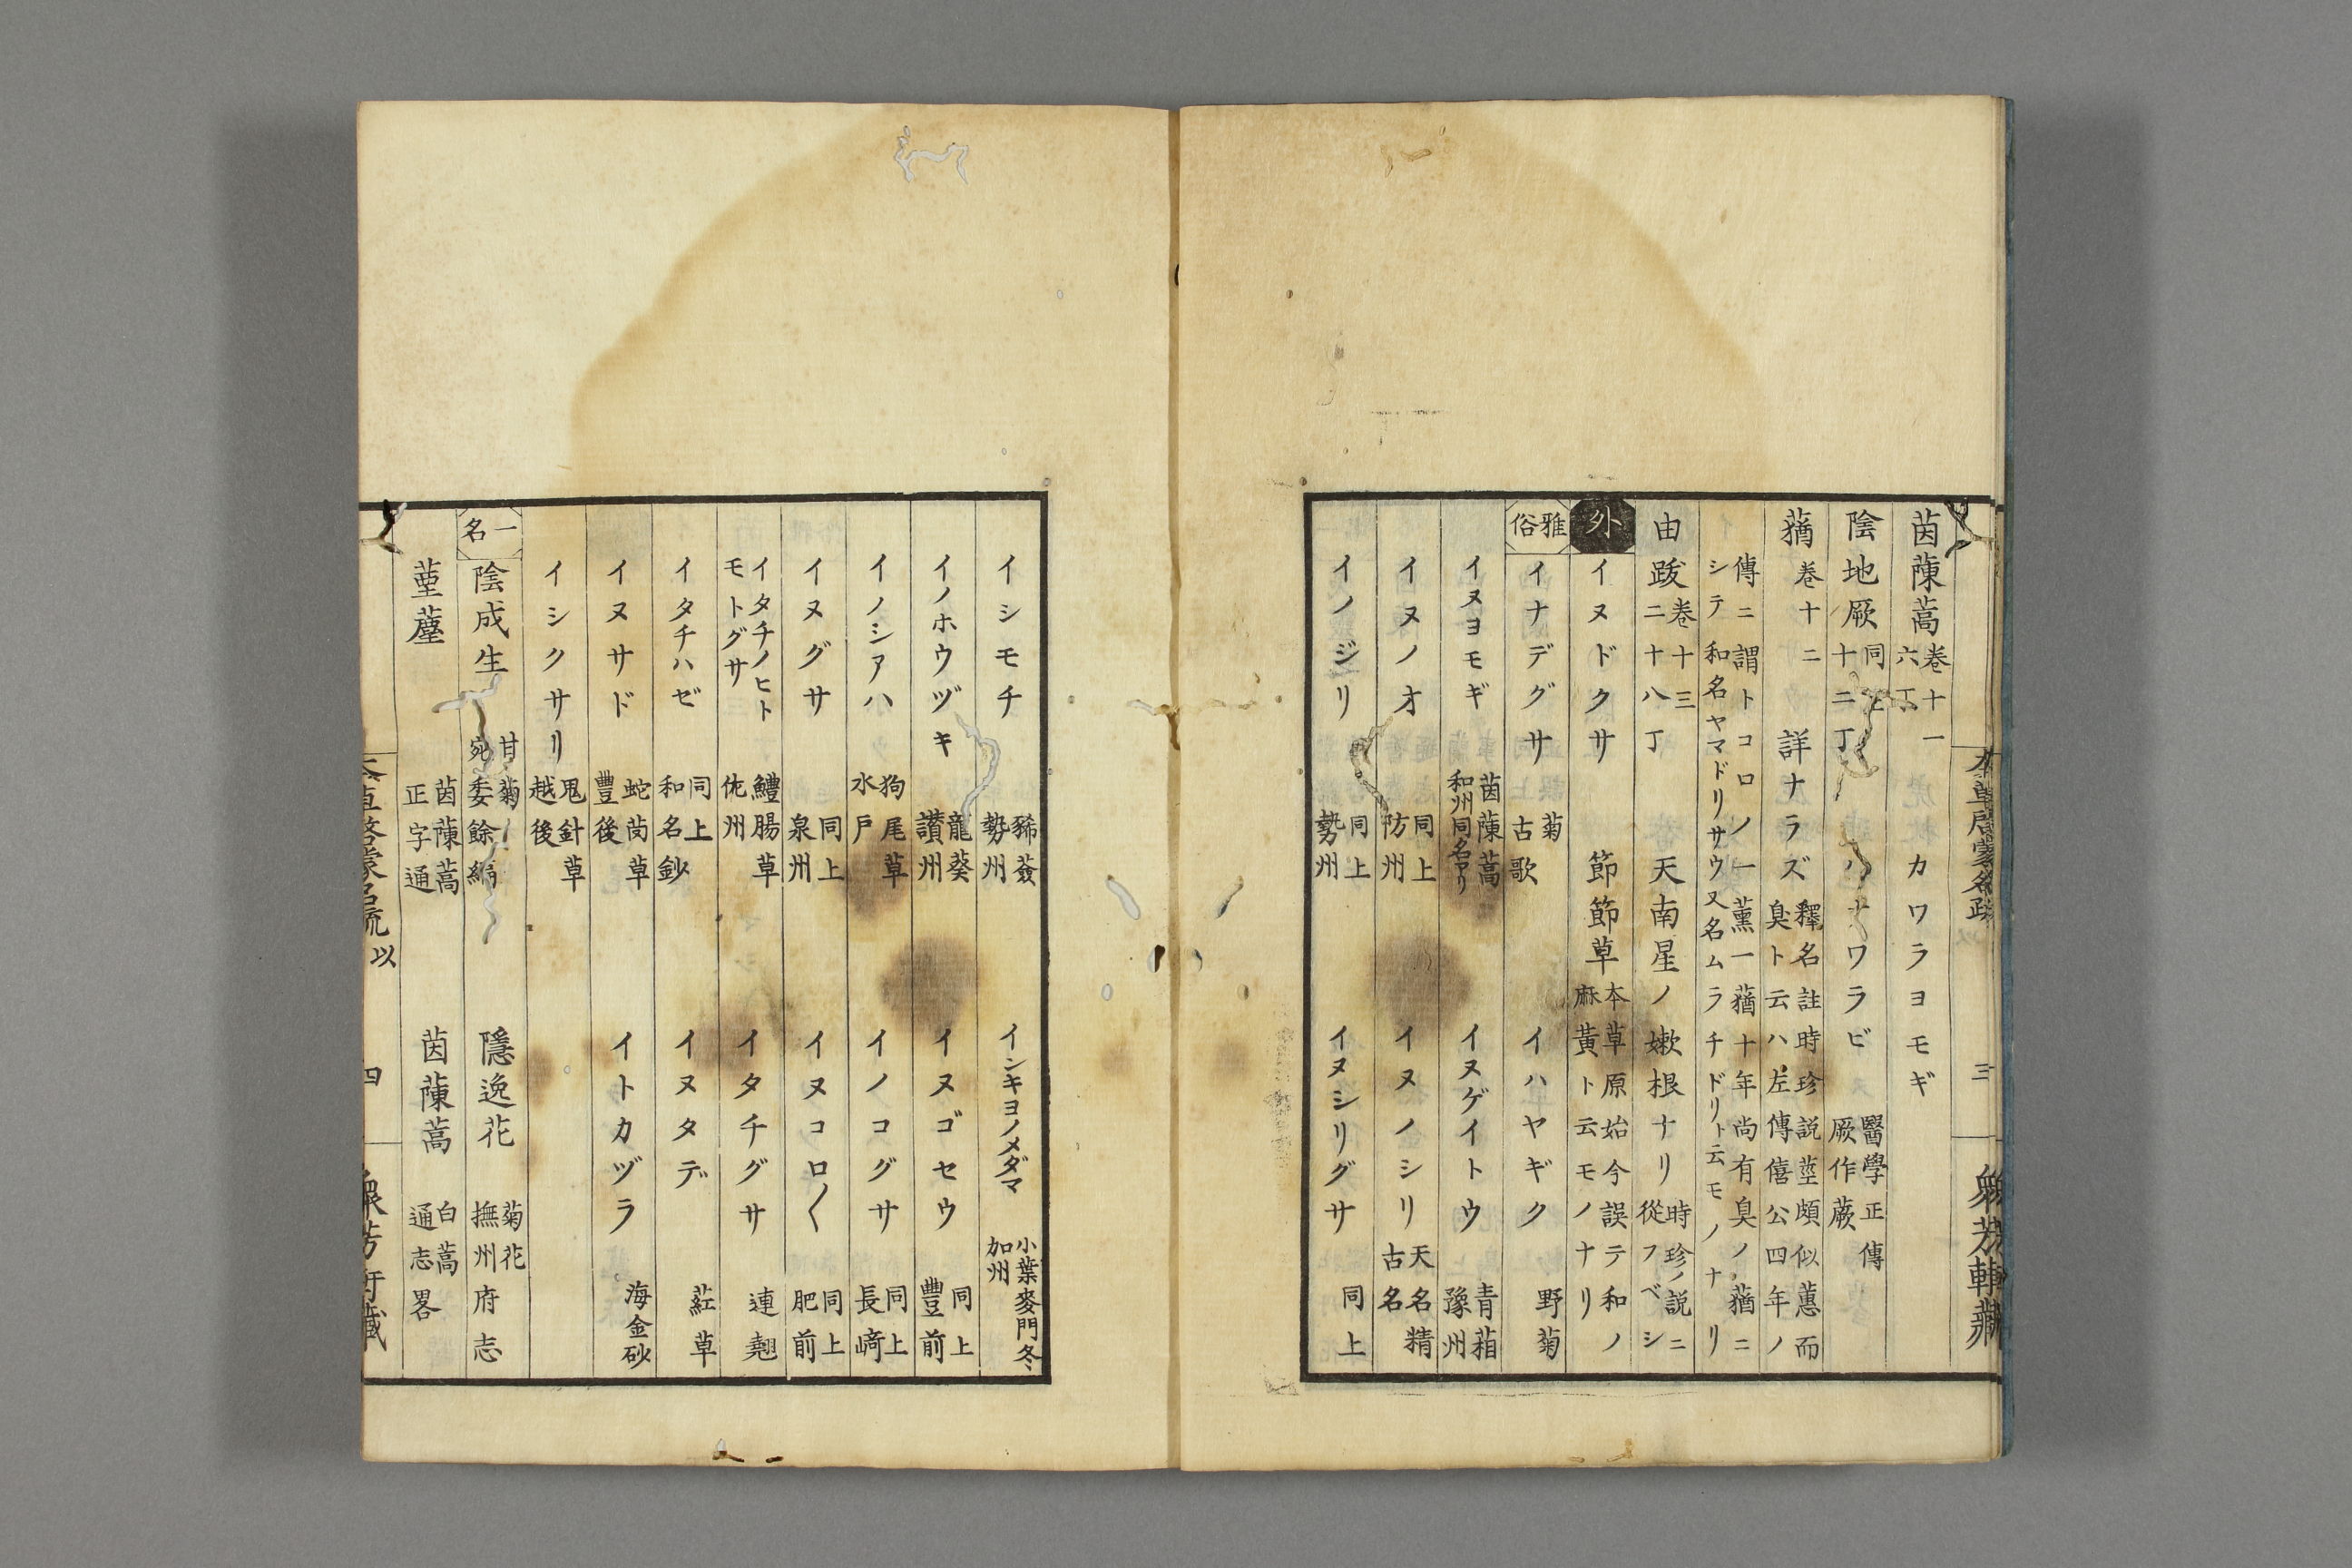 茵蔯蒿 巻十一 六丁 カワラヨモギ
陰地厥 同上 十二丁 ハナワラビ 醫學正傳 厥作蕨
蕕 巻十二 詳ナラズ 釋名註時珍説莖頗似蕙而臭ト云ハ左傳僖公四年ノ
傳ニ謂トコロノ一薫一蕕十年尚有臭ノ蕕ニシテ和名ヤマドリサウ又名ムラチドリト云モノナリ
由跋 巻十三 二十八丁 天南星ノ嫰根ナリ 時珍ノ説ニ從フベシ
外 イヌドクサ 節節草 本草原始今誤テ和ノ麻黃ト云モノナリ
雅俗 イナデグサ 菊 古歌 イハヤギク 野菊
イヌヨモギ 茵蔯蒿 和州同名アリ イヌゲイトウ 青葙 豫州
イヌノオ 同上 防州 イヌノシリ 天名精 古名
イノジリ 同上 勢州 イヌシリグサ 同上
本草啓蒙名疏 三 衆芳軒藏
イシモチ 豨薟 勢州 イシキヨノメダマ 小葉麥門冬 加州
イノホウヅキ 龍葵 讃州 イヌゴセウ 同上 豐前
イノシアハ 狗尾草 水戸 イノコグサ 同上 長﨑
イヌグサ 同上 泉州 イヌコロ〱 同上 肥前
イタチノヒトモトグサ 鱧腸草 佐州 イタチグサ 連翹
イタチハゼ 同上 和名鈔 イヌタデ 葒草
イヌサド 蛇茵草 豐後 イトカヅラ 海金砂
イシクサリ 鬼針草 越後
一名 陰成生 甘菊 委餘編 隱逸花 菊花 撫州府志
菫蘲 茵蔯蒿 正字通 茵蔯蒿 白蒿 通志畧
以 四